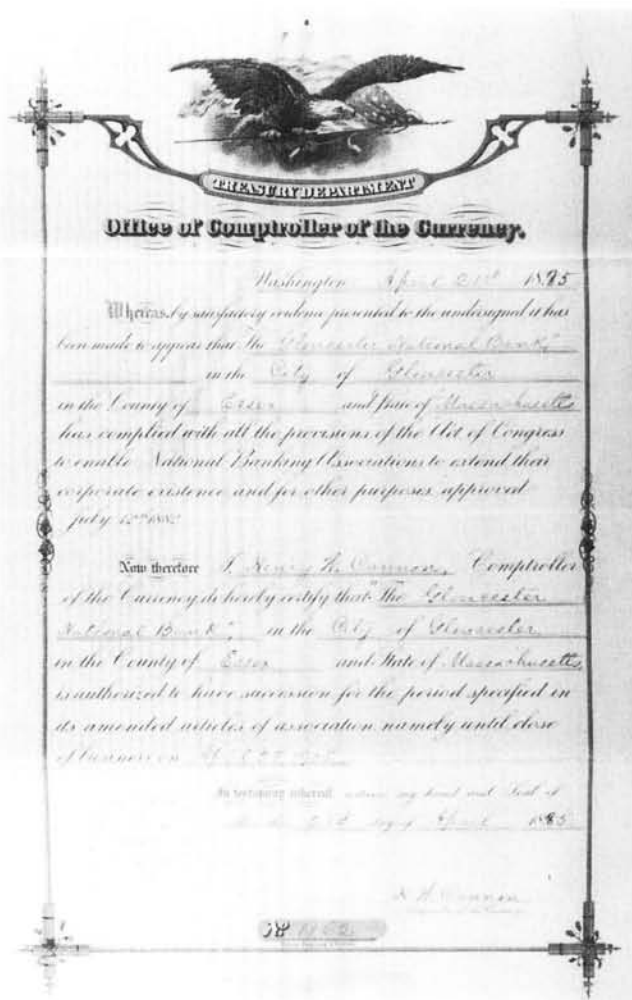 TREASURY DEPARTMENT
Office of Comptroller of the Currency.
Washington April 21st 1885
Whereas, by satisfactory evidence presented to the undersigned it has
been made to appear that "The Gloucester National Bank"
in the City of Gloucester
in the County of Essex and State of Massachusetts
has complied with all the provisions of the "Act of Congress
to enable National Banking Associations to extend their
corporate existence and for other purposes," approved
July 12th 1882
Now therefore I, Henry W. Cannon, Comptroller
of the Currency do hereby certify that "The Gloucester
National Bank", in the City of Gloucester
in the County of Essex and State of Massachusetts,
is authorized to have succession for the period specified in
its amended articles of association namely until close
of business on April
In testimony whereof witness my hand and Seal of
day of April 1885
H W Cannon
Comptroller of the Currency
No 1162